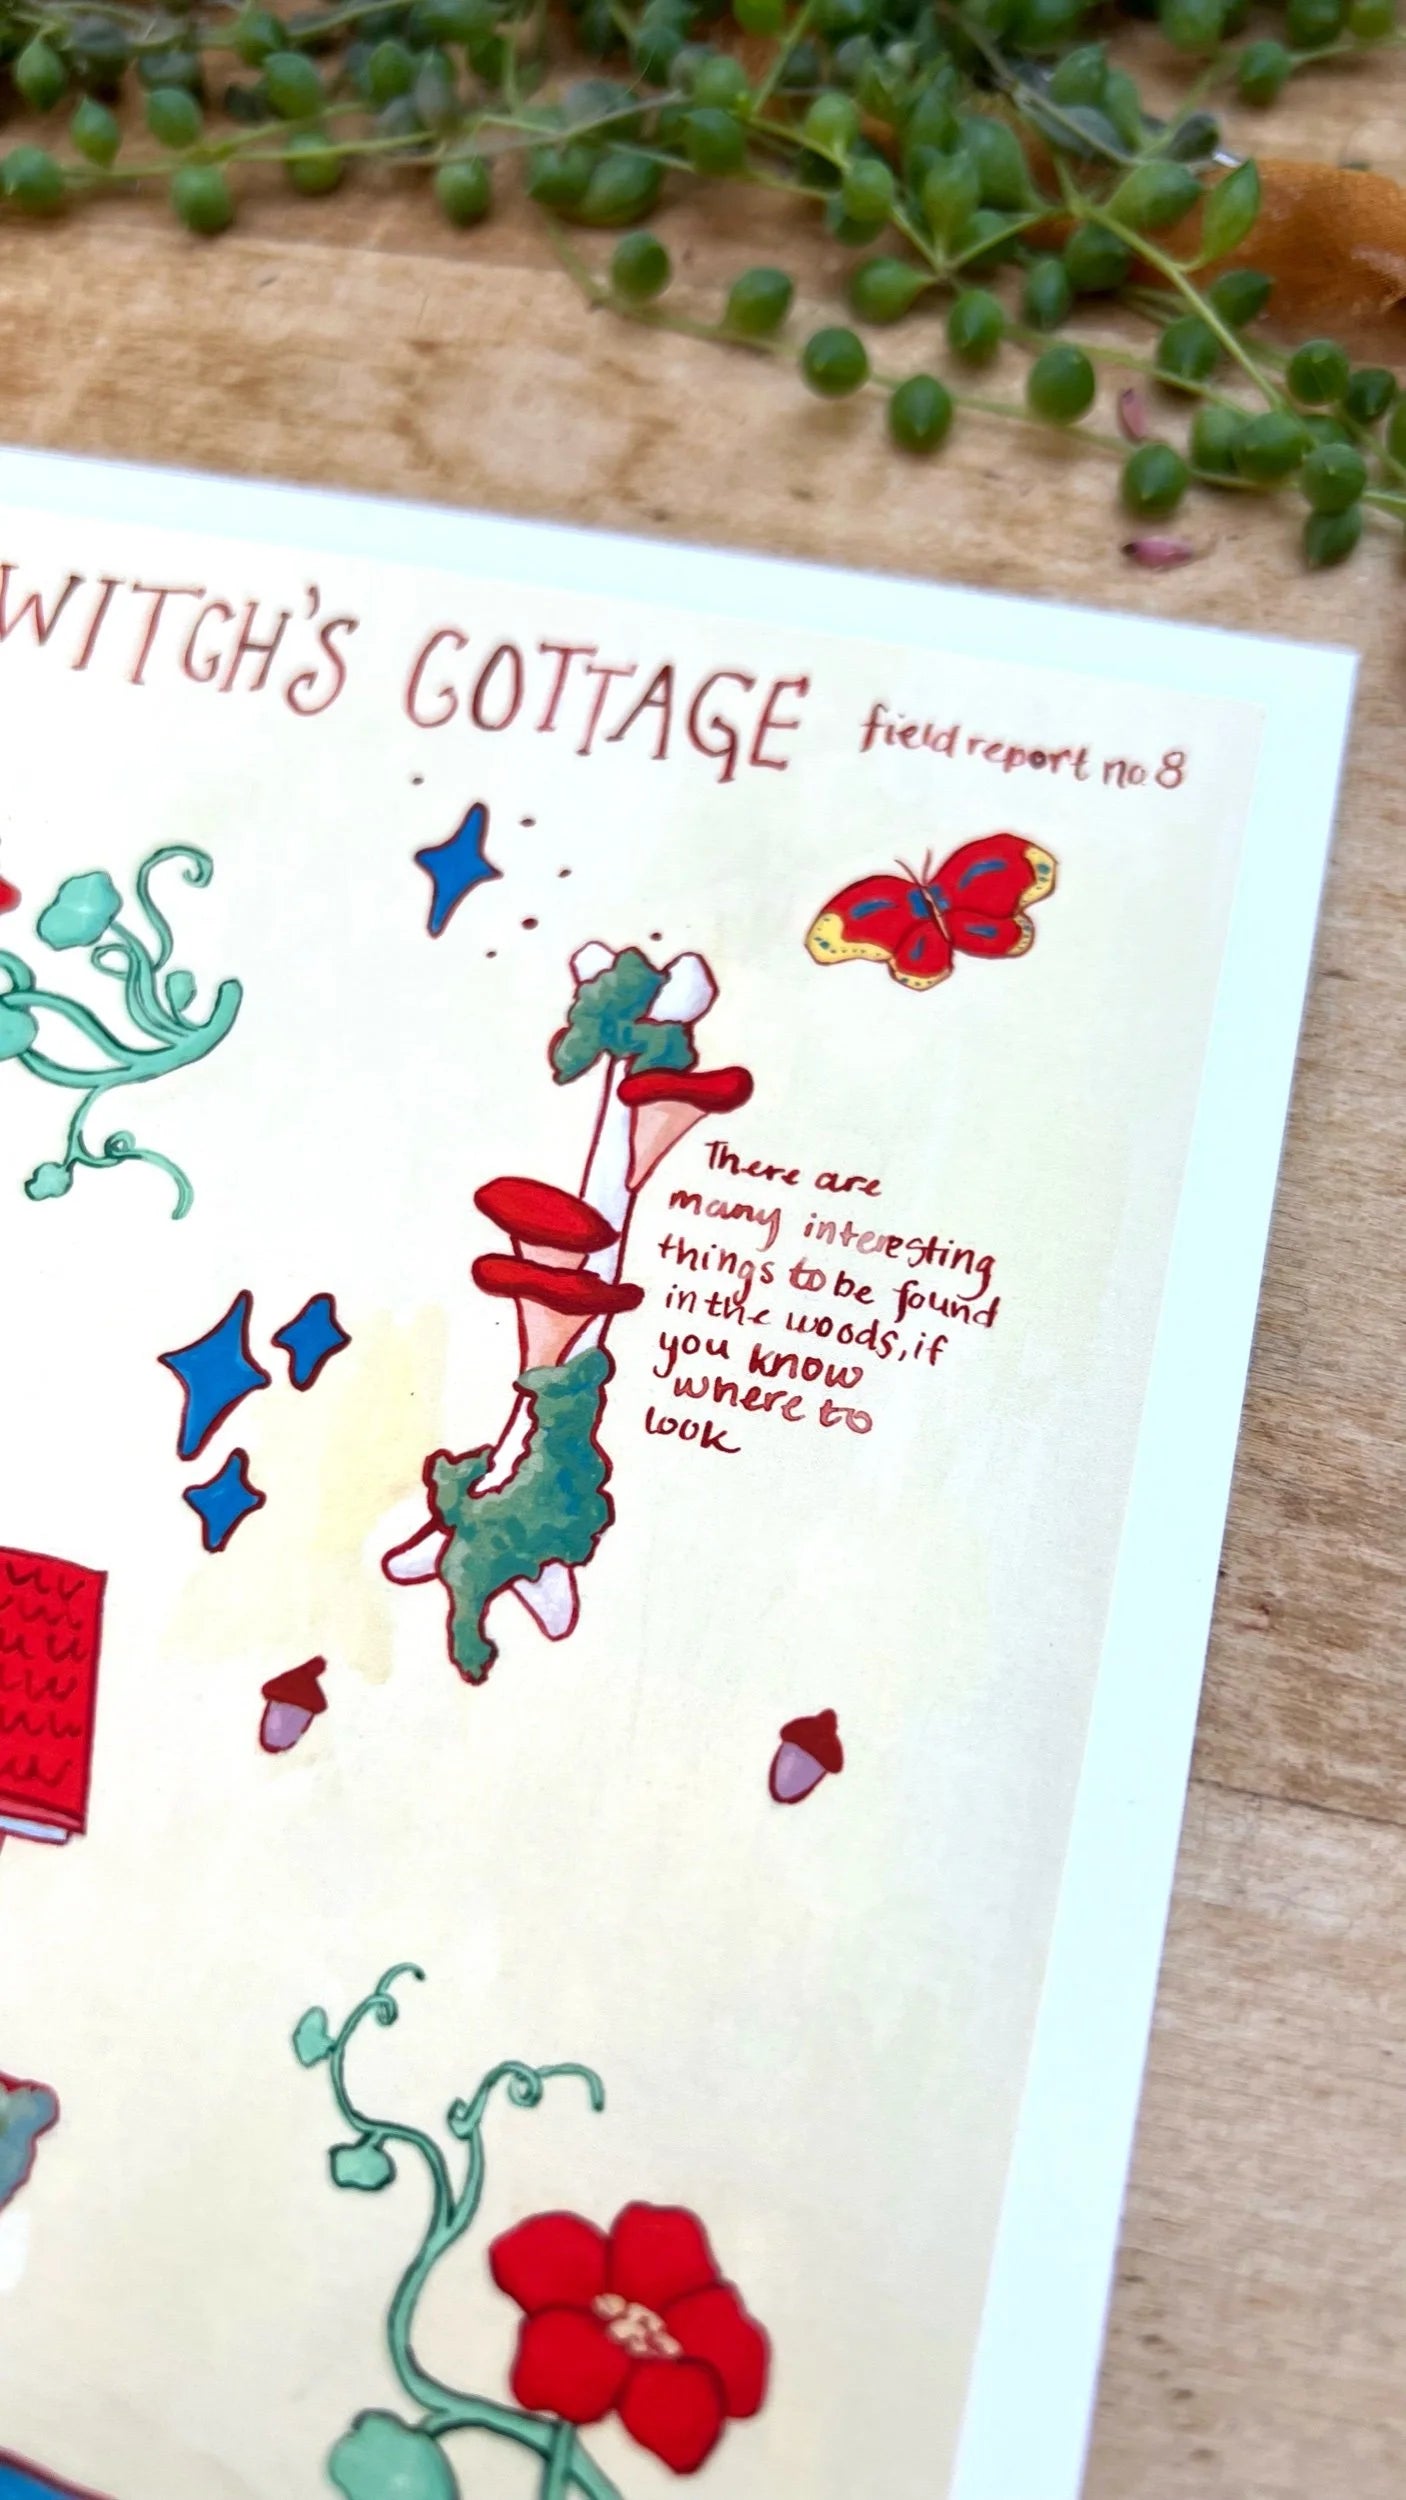 WITCH'S COTTAGE field report no. 8
There are
many interesting
things to be found
in the woods, if
you know
where to
look